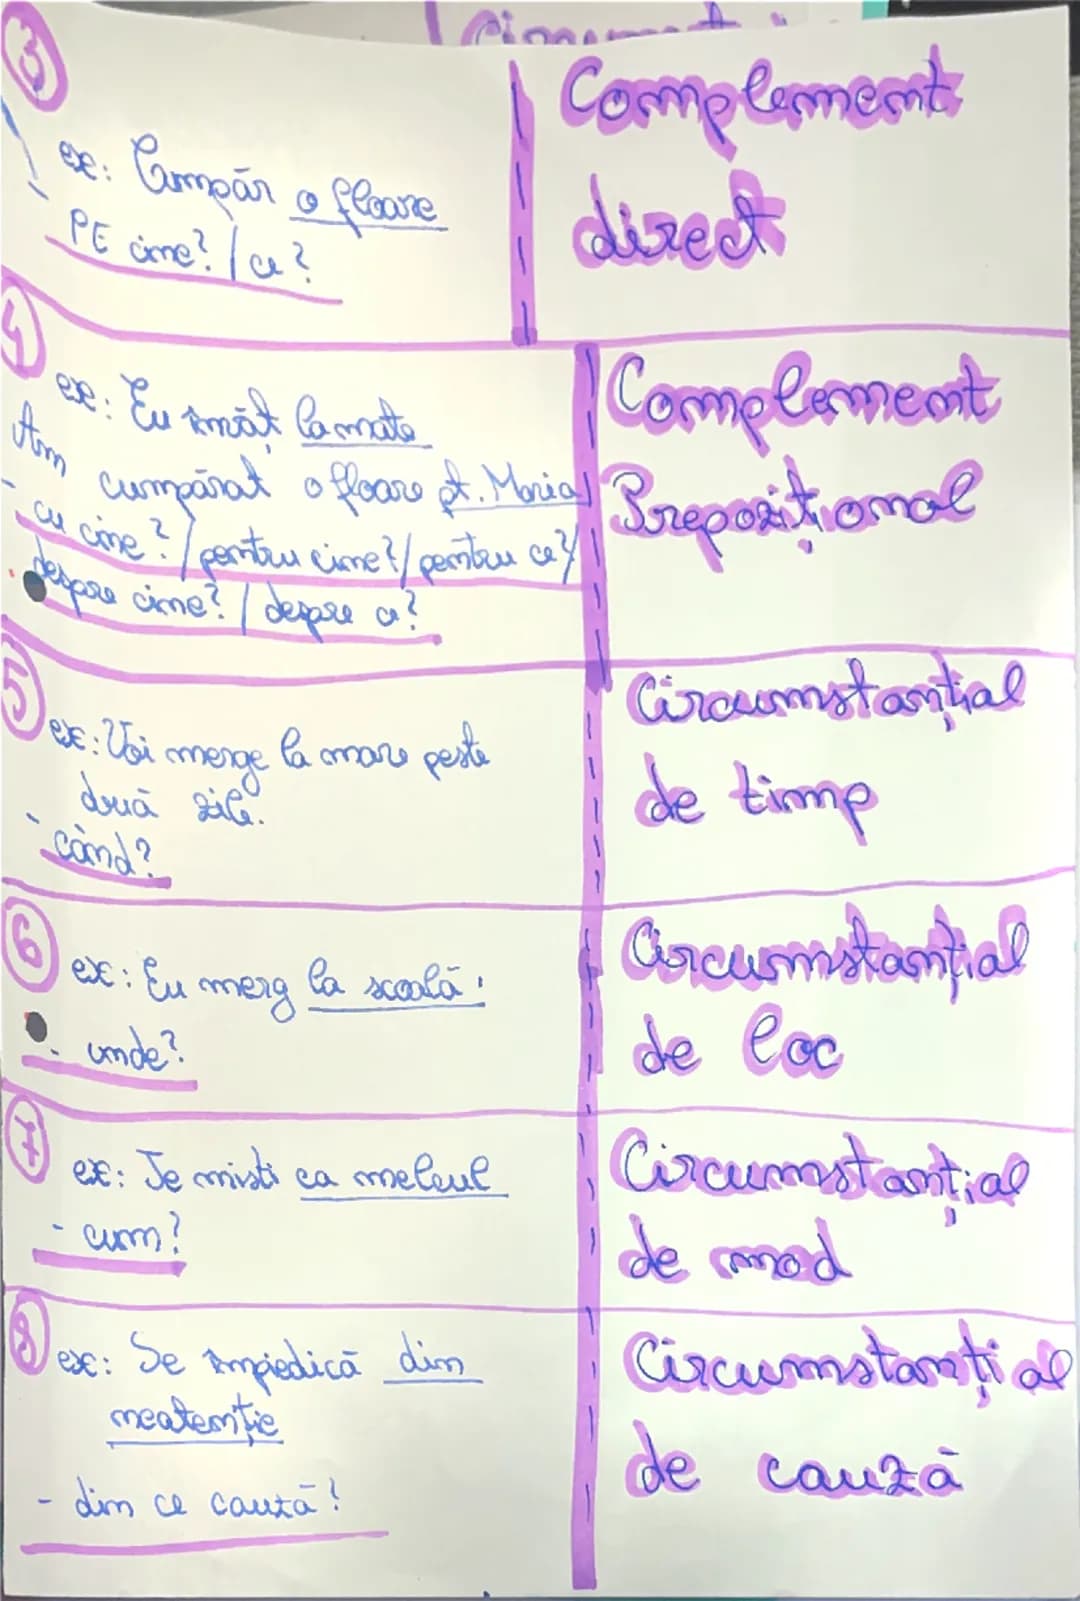 ③
ex: Cumpăr o floare
PE cine? / ce?
Complement
direct
④
ex: Eu învăț la mate
Am cumpărat o floare pt. Maria
- cu cine? / pentru cine? / pentru ce? /
despre cine? / despre ce?
Complement
Prepozițional
⑤
ex: Voi merge la mare peste
două zile.
- când?
Circumstanțial
de timp
⑥
ex: Eu merg la scoală.
- unde?
Circumstanțial
de loc
⑦
ex: Te misti ca melcul
- cum?
Circumstanțial
de mod
⑧
ex: Se împiedică din
neatenție
- din ce cauză?
Circumstanțial
de cauză